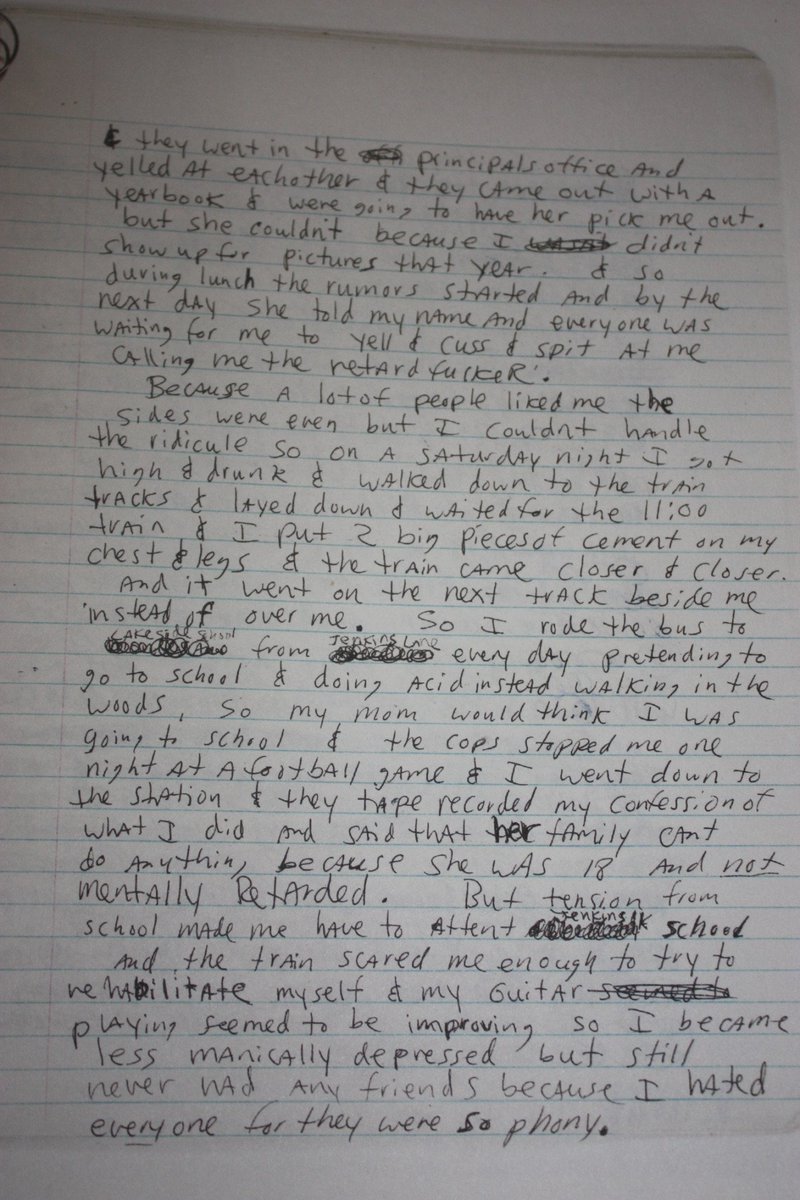 & they went in the principals office And
yelled At eAchother & they cAme out with A
yeArbook & were going to hAve her pick me out.
but she couldn't becAuse I didn't
show up for pictures thAt yeAr. & so
during lunch the rumors stArted And by the
next dAy she told my nAme And everyone wAs
wAiting for me to yell & cuss & spit At me
cAlling me the retArd fuckeR'.
BecAuse A lot of people liked me the
sides were even but I couldnt hAndle
the ridicule so on A sAturdAy night I got
high & drunk & wAlked down to the trAin
trAcks & lAyed down & wAited for the 11:00
trAin & I put 2 big pieces of cement on my
chest & legs & the trAin cAme closer & closer.
And it went on the next trAck beside me
insteAd of over me. So I rode the bus to
lAkeside school from Jenkins Lane every dAy pretending to
go to school & doing Acid insteAd wAlking in the
woods, So my mom would think I wAs
going to school & the cops stopped me one
night At A footbAll gAme & I went down to
the stAtion & they tApe recorded my confession of
whAt I did And sAid thAt her fAmily cAnt
do Anything becAuse she wAs 18 And not
mentAlly RetArded. But tension from
school mAde me hAve to Attent Jenkins school
And the trAin scAred me enough to try to
rehAbilitAte myself & my GuitAr seemed to
plAying seemed to be improving so I becAme
less mAnicAlly depressed but still
never hAd Any friends becAuse I hAted
everyone for they were so phony.